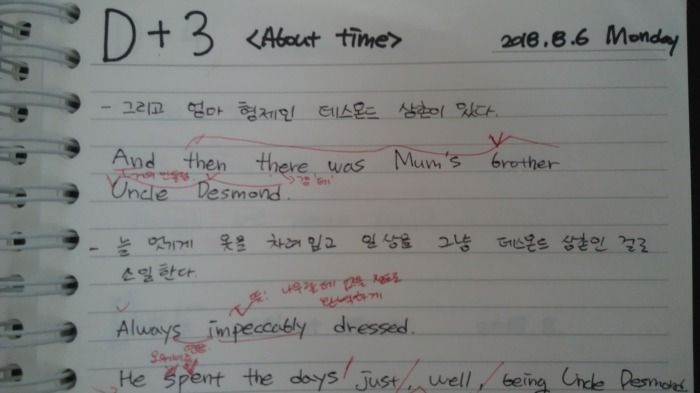 D+3 <About time> 2018.8.6 Monday
- 그리고 엄마 형제인 데스몬드 삼촌이 있다.
And then there was Mum's brother
Uncle Desmond.
- 늘 멋지게 옷을 차려입고 일상을 그냥 데스몬드 삼촌인 걸로
소일한다.
뜻: 나무랄데 없을 정도로
완벽하게
Always impeccably dressed.
He spent the days / just /, well, / being Uncle Desmond.